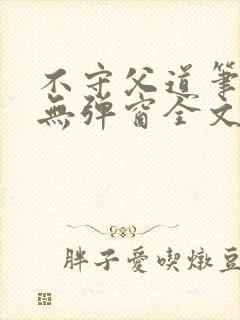 不守父道筆
無彈窗全文
胖子愛喫燉豆